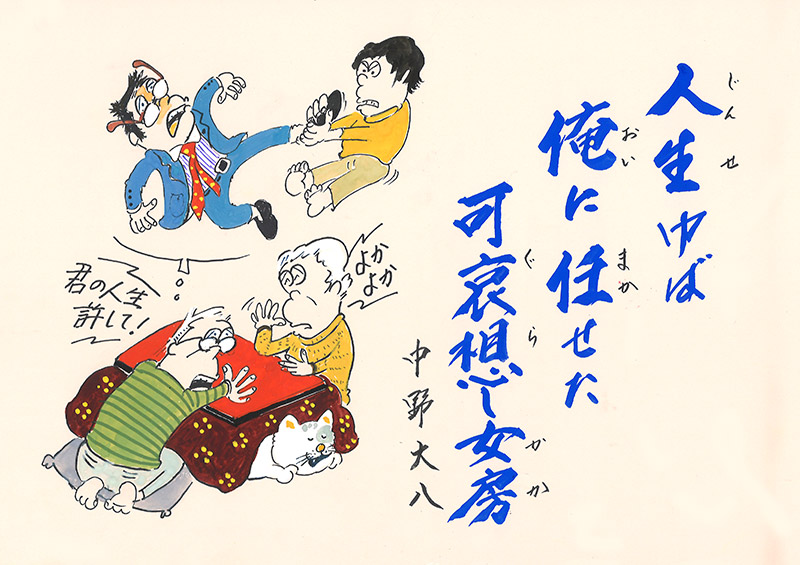 人生ゆば
じんせ
俺に任せた
おい
まか
可哀想し女房
ぐらし
かか
中野大八
君の人生
許して!
よか
よか